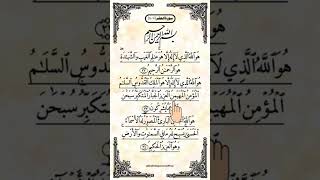 بسم الله الرحمن الرحيم
هُوَ اللَّهُ الَّذِي لَا إِلَٰهَ إِلَّا هُوَ عَالِمُ الْغَيْبِ وَالشَّهَادَةِ
هُوَ الرَّحْمَٰنُ الرَّحِيمُ
هُوَ اللَّهُ الَّذِي لَا إِلَٰهَ إِلَّا هُوَ الْمَلِكُ الْقُدُّوسُ السَّلَامُ
الْمُؤْمِنُ الْمُهَيْمِنُ الْعَزِيزُ الْجَبَّارُ الْمُتَكَبِّرُ سُبْحَٰنَ
يُشْرِكُونَ
هُوَ اللَّهُ الْبَارِئُ الْمُصَوِّرُ لَهُ الْأَسْمَاءُ
الْحُسْنَىٰ يُسَبِّحُ لَهُ مَا فِي السَّمَٰوَٰتِ وَالْأَرْضِ
وَهُوَ الْعَزِيزُ الْحَكِيمُ